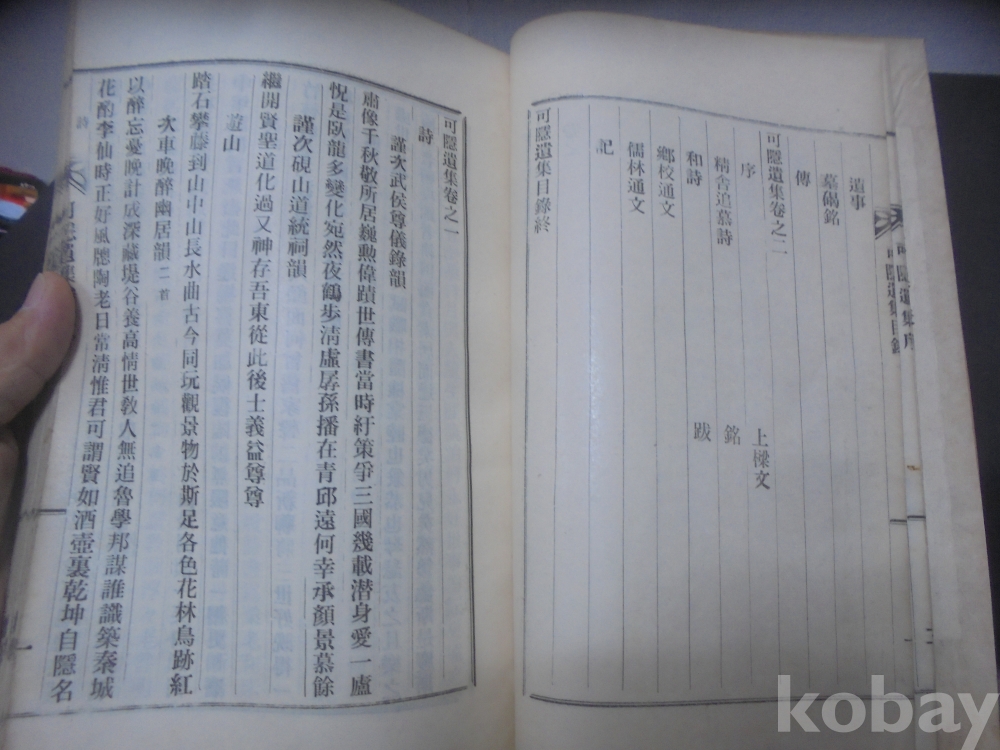 可隱遺集序
可隱遺集目錄
遺事
墓碣銘
傳
可隱遺集卷之二
序 上樑文
精舍追慕詩 銘
和詩 跋
鄕校通文
儒林通文
記
可隱遺集目錄終
可隱遺集卷之一
詩
謹次武侯尊儀錄韻
肅像千秋敬所居巍勳偉蹟世傳書當時紆策爭三國幾載潜身愛一廬
怳是臥龍多變化宛然夜鶴步淸虛孱孫播在青邱遠何幸承顏景慕餘
謹次硯山道統祠韻
繼開賢聖道化過又神存吾東從此後士義益尊尊
遊山
踏石攀藤到山中山長水曲古今同玩觀景物於斯足各色花林鳥跡紅
次車晚醉幽居韻 二首
以醉忘憂晚計成深藏堤谷養高情世敎人無追魯學邦謀誰識築秦城
花酌李仙時正好風牕陶老日常淸惟君可謂賢如酒壺裏乾坤自隱名
kobay